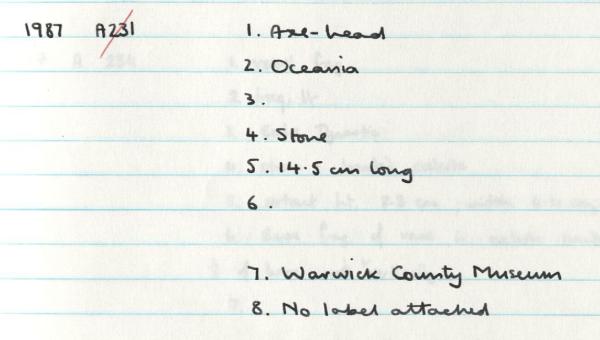 1987 A231 1. Axe-head
2. Oceania
3.
4. Stone
5. 14.5 cm long
6.
7. Warwick County Museum
8. No label attached